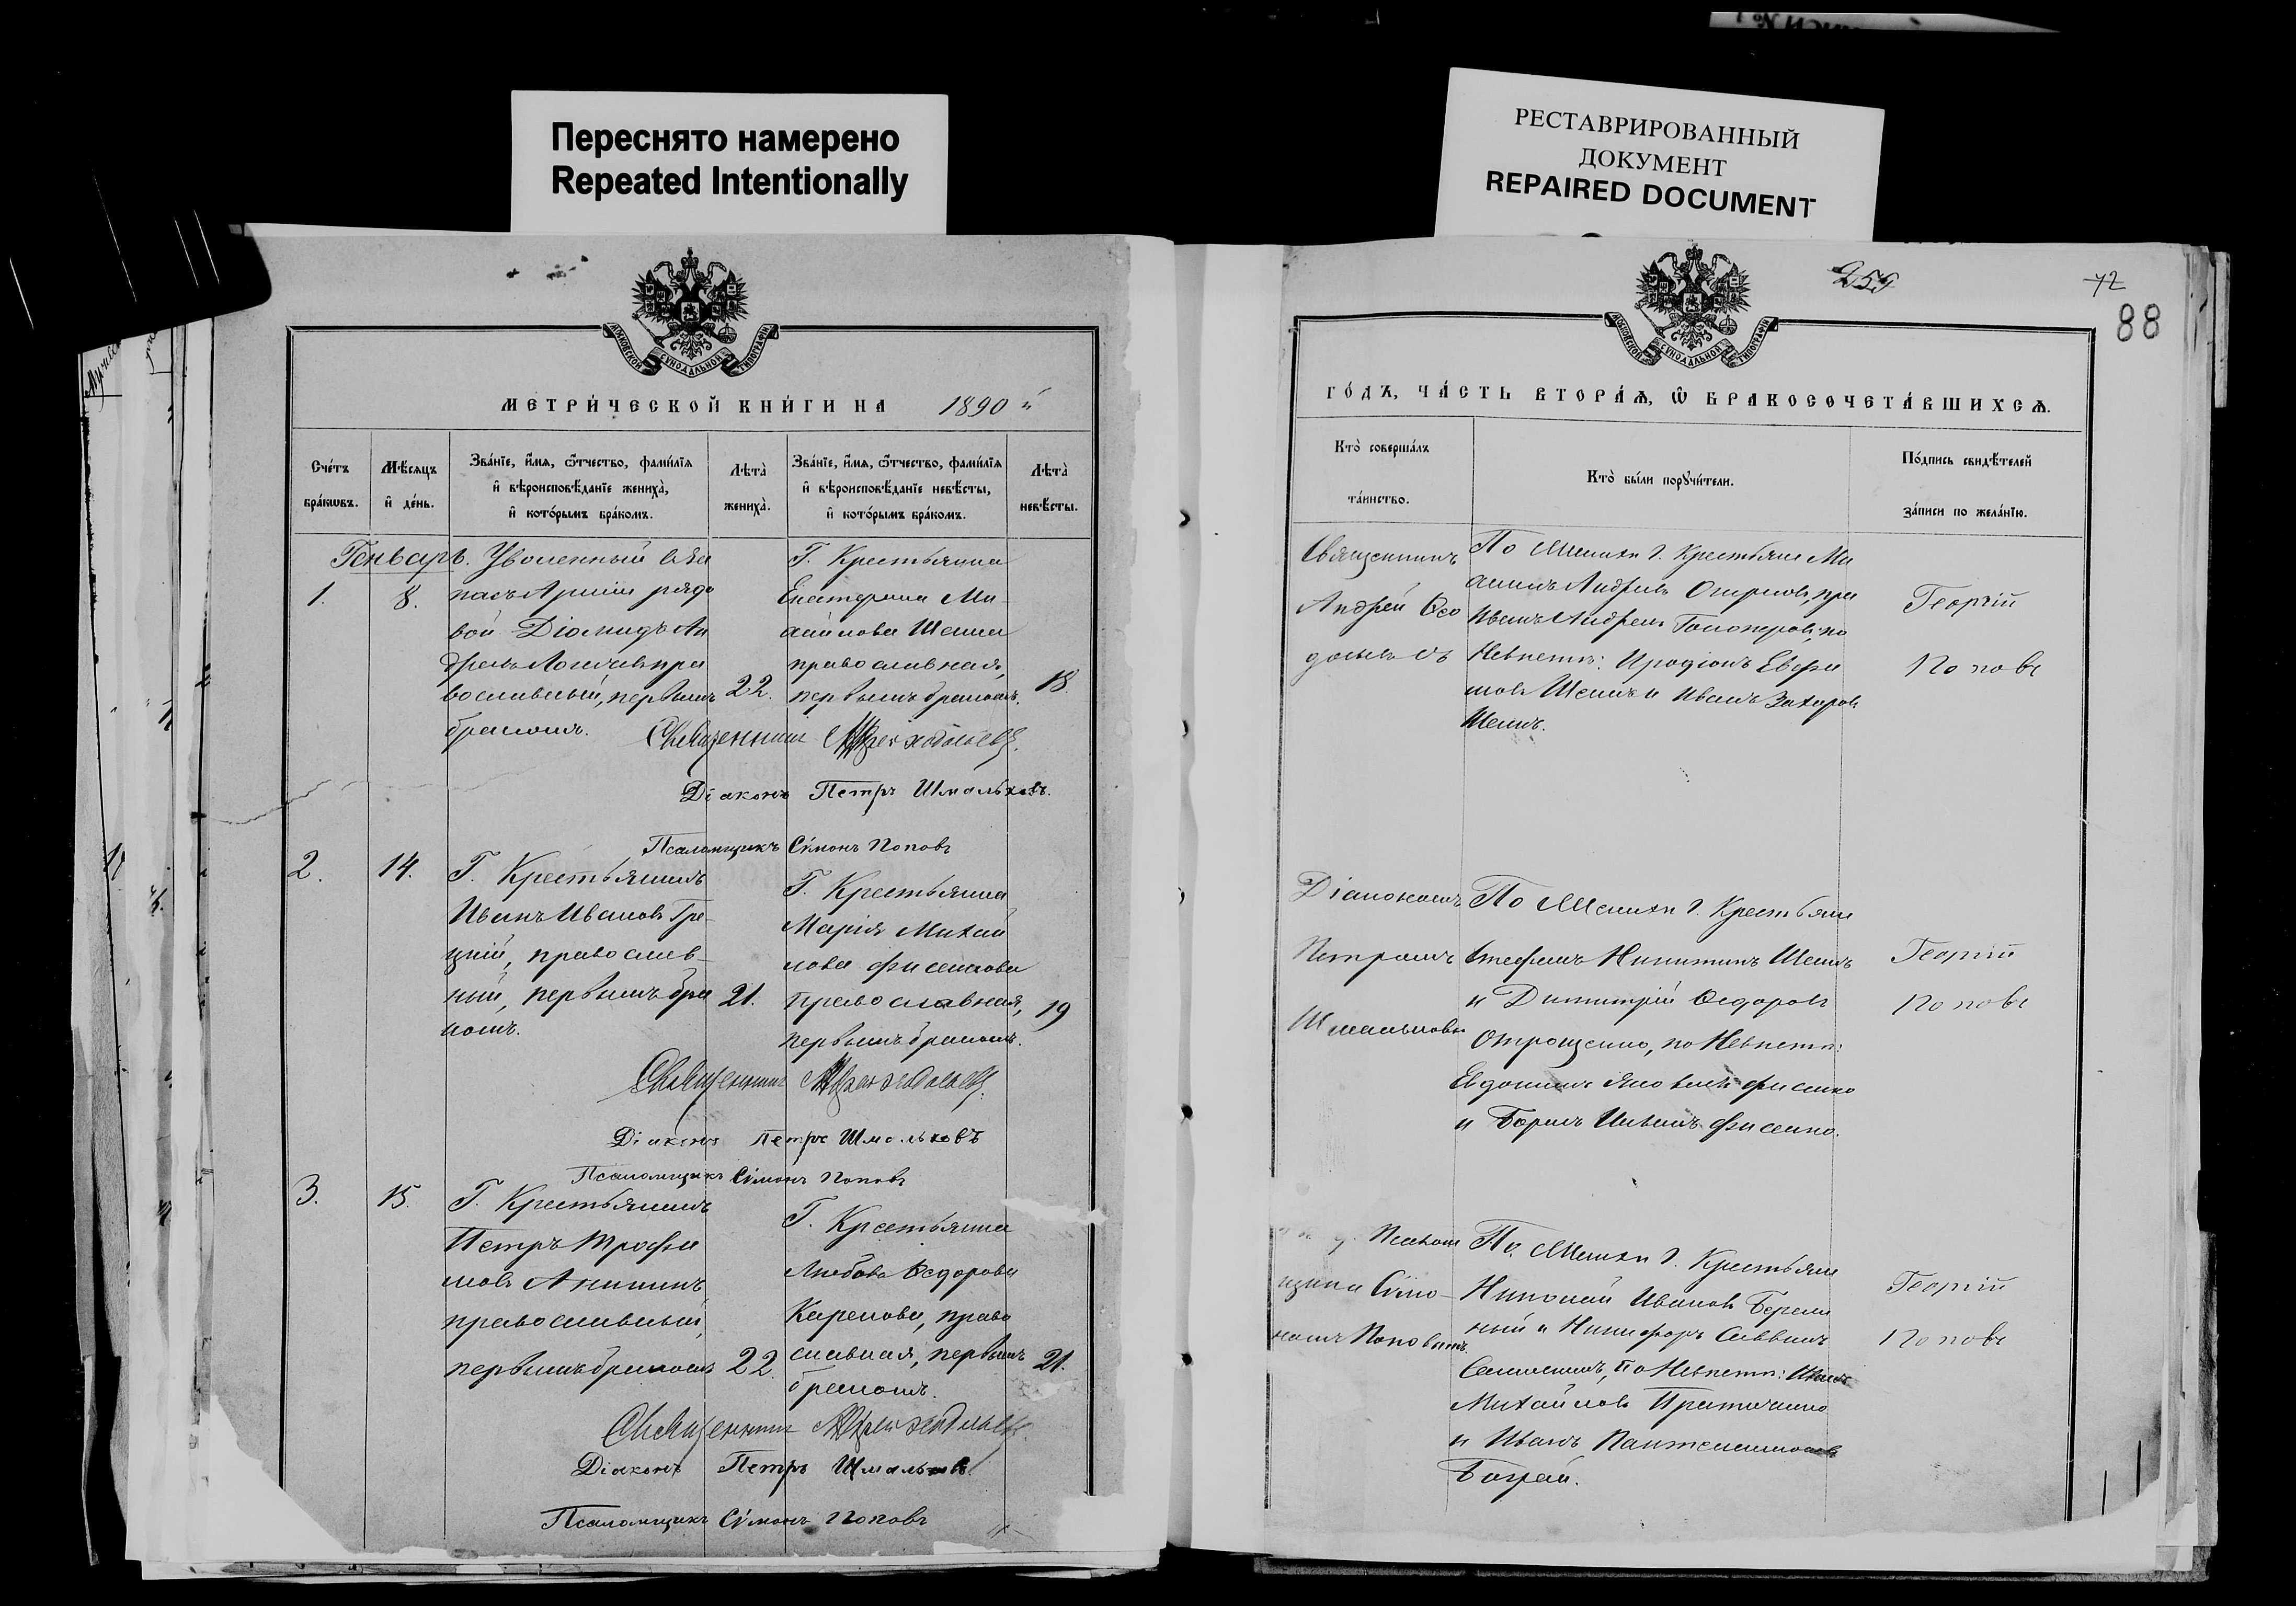 Переснято намерено
Repeated Intentionally
РЕСТАВРИРОВАННЫЙ
ДОКУМЕНТ
REPAIRED DOCUMENT
МОСКОВСКОЙ СѴНОДАЛЬНОЙ ТИПОГРАФІИ
МЕТРИ́ЧЕСКОЙ КНИ́ГИ НА 1890 й
Сче́тъ бра́кѡвъ.
Мѣ́сяцъ и҆ де́нь.
Зва́нїе, и҆́мѧ, ѻ҆́тчество, фами́лїѧ
и҆ вѣроисповѣ́данїе жениха̀,
и҆ кото́рымъ бра́комъ.
Лѣта̀ жениха̀.
Зва́нїе, и҆́мѧ, ѻ҆́тчество, фами́лїѧ
и҆ вѣроисповѣ́данїе невѣ́сты,
и҆ кото́рымъ бра́комъ.
Лѣта̀ невѣ́сты.
Генварь.
1.
8.
Уволенный въ за
пасъ Арміи рядо
вой Діомидъ Ан
дреевъ пра
вославный, первымъ
бракомъ.
22.
Г. Крестьянка
Екатерина Ми
хайлова Шеина
православная,
первымъ бракомъ.
18.
Священникъ
Діаконъ Петръ Шмальковъ.
Псаломщикъ Сѵмонъ Поповъ
2.
14.
Г. Крестьянинъ
Иванъ Ивановъ Гре-
цкій, православ-
ный, первымъ бра
комъ.
21.
Г. Крестьянка
Марія Михай
лова Фисенкова
православная,
первымъ бракомъ.
19
Священникъ
Діаконъ Петръ Шмальковъ
Псаломщикъ Сѵмонъ Поповъ
3.
15.
Г. Крестьянинъ
Петръ Трофи
мовъ Аникинъ,
православный,
первымъ бракомъ
22.
Г. Крестьянка
Любовь Ѳедорова
Карпова, право
славная, первымъ
бракомъ.
21.
Священникъ
Діаконъ Петръ Шмальковъ
Псаломщикъ Сѵмонъ Поповъ
259
72
88
МОСКОВСКОЙ СѴНОДАЛЬНОЙ ТИПОГРАФІИ
ГО́ДЪ, ЧА́СТЬ ВТОРА́Ѧ, Ѡ҆ БРАКОСОЧЕТА́ВШИХСѦ.
Кто̀ соверша́лъ та́инство.
Кто̀ бы́ли порꙋчи́тели.
По́дпись свидѣ́телей
за́писи по жела́нїю.
Священникъ
Андрей Ѳео
По Женихѣ Г. Крестьяне Ми
Иванъ Андреевъ по
Невѣстѣ: Иродіонъ Евфи
мовъ Шеинъ и Иванъ Захаровъ
Шеинъ.
Георгій
Поповъ
Діакономъ
Петромъ
Шмальковымъ
По Женихѣ Г. Крестьяне
Стефанъ Никитинъ Шеинъ
и Димитрій Ѳедоровъ
Отрощенко, по Невѣстѣ:
Евдокимъ Яковлевъ Фисенко
и Борисъ Фисенко.
Георгій
Поповъ
Псалом
щика Сѵмо-
номъ Поповымъ.
По Женихѣ Г. Крестьяне
Николай Ивановъ
и Никифоръ Саввинъ
по Невѣстѣ: Иванъ
Михайловъ
и Иванъ Пантелеимоновъ
Баграй.
Георгій
Поповъ